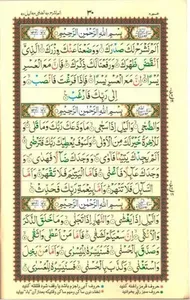 ٣٠
بِسْمِ اللَّهِ الرَّحْمَنِ الرَّحِيمِ
أَلَمْ نَشْرَحْ لَكَ صَدْرَكَ وَوَضَعْنَا عَنْكَ وِزْرَكَ الَّذِي
أَنْقَضَ ظَهْرَكَ وَرَفَعْنَا لَكَ ذِكْرَكَ فَإِنَّ مَعَ الْعُسْرِ
يُسْرًا إِنَّ مَعَ الْعُسْرِ يُسْرًا فَإِذَا فَرَغْتَ فَانْصَبْ وَ
إِلَى رَبِّكَ فَارْغَبْ
بِسْمِ اللَّهِ الرَّحْمَنِ الرَّحِيمِ
وَالضُّحَى وَاللَّيْلِ إِذَا سَجَى مَا وَدَّعَكَ رَبُّكَ وَمَا قَلَى وَ
لَلْآخِرَةُ خَيْرٌ لَكَ مِنَ الْأُولَى وَلَسَوْفَ يُعْطِيكَ رَبُّكَ فَتَرْضَى
أَلَمْ يَجِدْكَ يَتِيمًا فَآوَى وَوَجَدَكَ ضَالًّا فَهَدَى وَ
وَجَدَكَ عَائِلًا فَأَغْنَى فَأَمَّا الْيَتِيمَ فَلَا تَقْهَرْ وَأَمَّا
السَّائِلَ فَلَا تَنْهَرْ وَأَمَّا بِنِعْمَةِ رَبِّكَ فَحَدِّثْ
بِسْمِ اللَّهِ الرَّحْمَنِ الرَّحِيمِ
وَاللَّيْلِ إِذَا يَغْشَى وَالنَّهَارِ إِذَا تَجَلَّى وَمَا خَلَقَ الذَّكَرَ
وَالْأُنْثَى إِنَّ سَعْيَكُمْ لَشَتَّى فَأَمَّا مَنْ أَعْطَى وَاتَّقَى
وَصَدَّقَ بِالْحُسْنَى فَسَنُيَسِّرُهُ لِلْيُسْرَى وَأَمَّا مَنْ بَخِلَ
وَاسْتَغْنَى وَكَذَّبَ بِالْحُسْنَى فَسَنُيَسِّرُهُ لِلْعُسْرَى